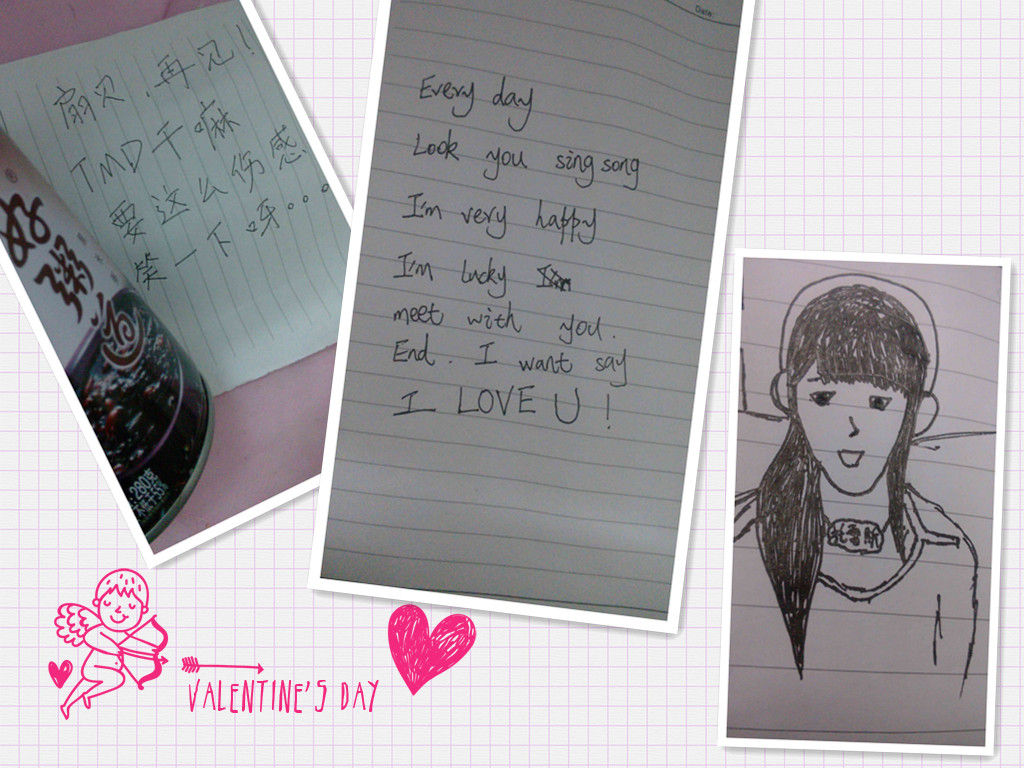 扇贝，再见！
TMD干嘛
要这么伤感
笑一下呀。。。
粥
280克
Date
Every day
Look you sing song
I'm very happy
I'm lucky
meet with you.
End. I want say
I LOVE U !
VALENTINE'S DAY